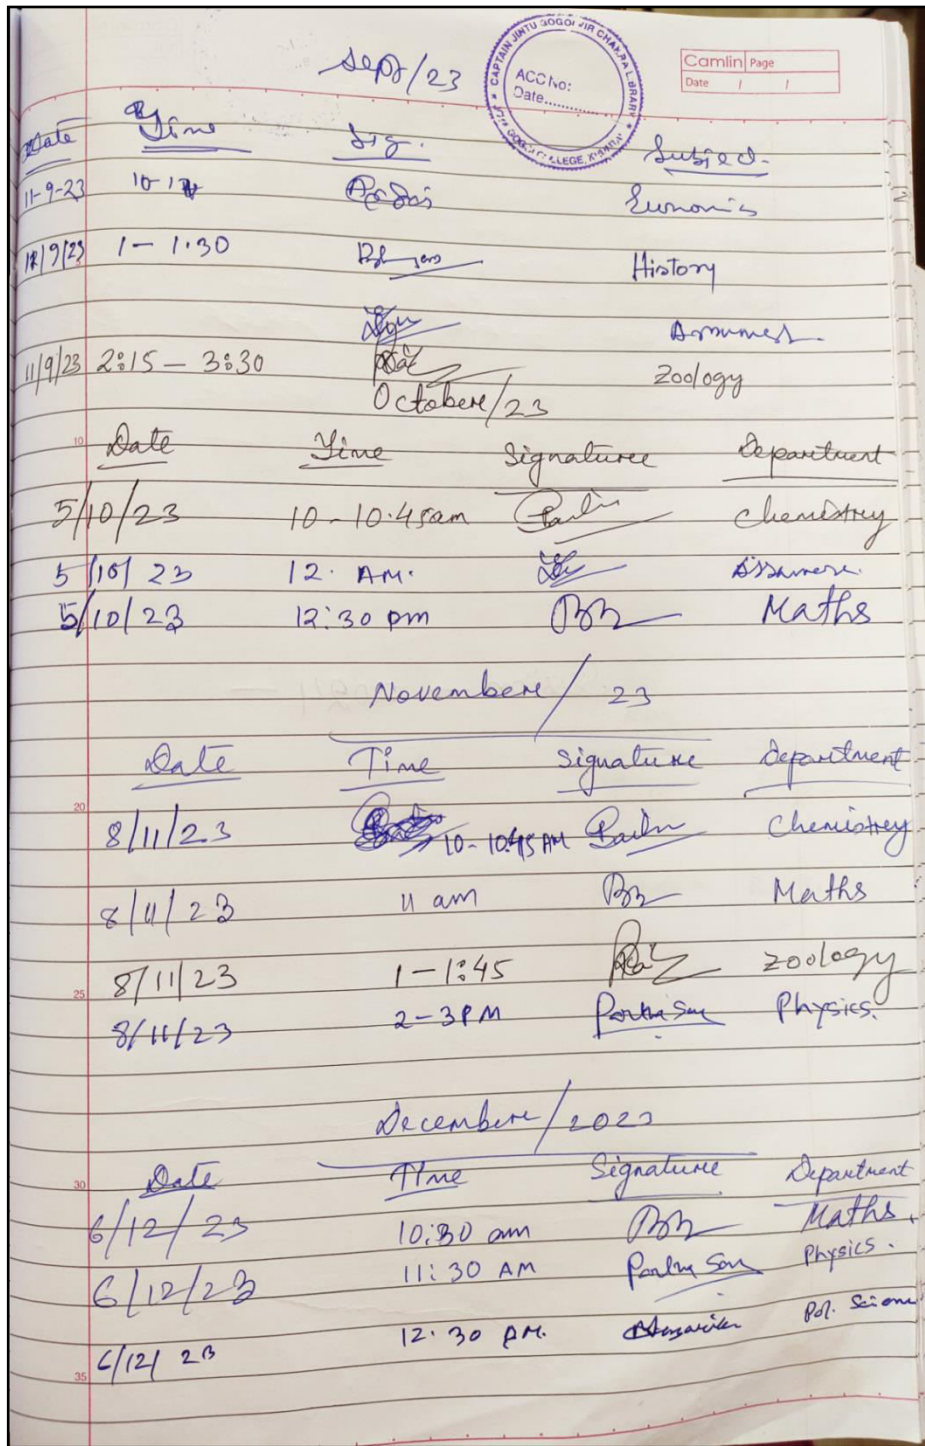 Sept/23
CAPTAIN JINTU GOGOI VIR CHAKRA LIBRARY
ACC No:
Date..............
GOGOI COLLEGE, KHOWANG
Camlin Page
Date / /
Date Time Sig. Subject.
11-9-23 10-12 Economics
12/9/23 1-1.30 History
Assamese.
11/9/23 2:15 - 3:30 Zoology
Octobere/23
10 Date Time Signaturee Deparetment
5/10/23 10-10.45am Chemistrey
5/10/23 12. AM. Assamese.
5/10/23 12:30 pm Maths
Novembere/ 23
Date Time Signature Deparetment
20
8/11/23 10-10.45 AM Chemistrey
8/11/23 11 am Maths
8/11/23 1-1:45 Zoology
25
8/11/23 2-3PM Physics.
Decembere/2023
30 Date Time Signature Department
6/12/23 10:30 am Maths.
6/12/23 11:30 AM Physics.
6/12/23 12.30 PM. Pol. Science
35